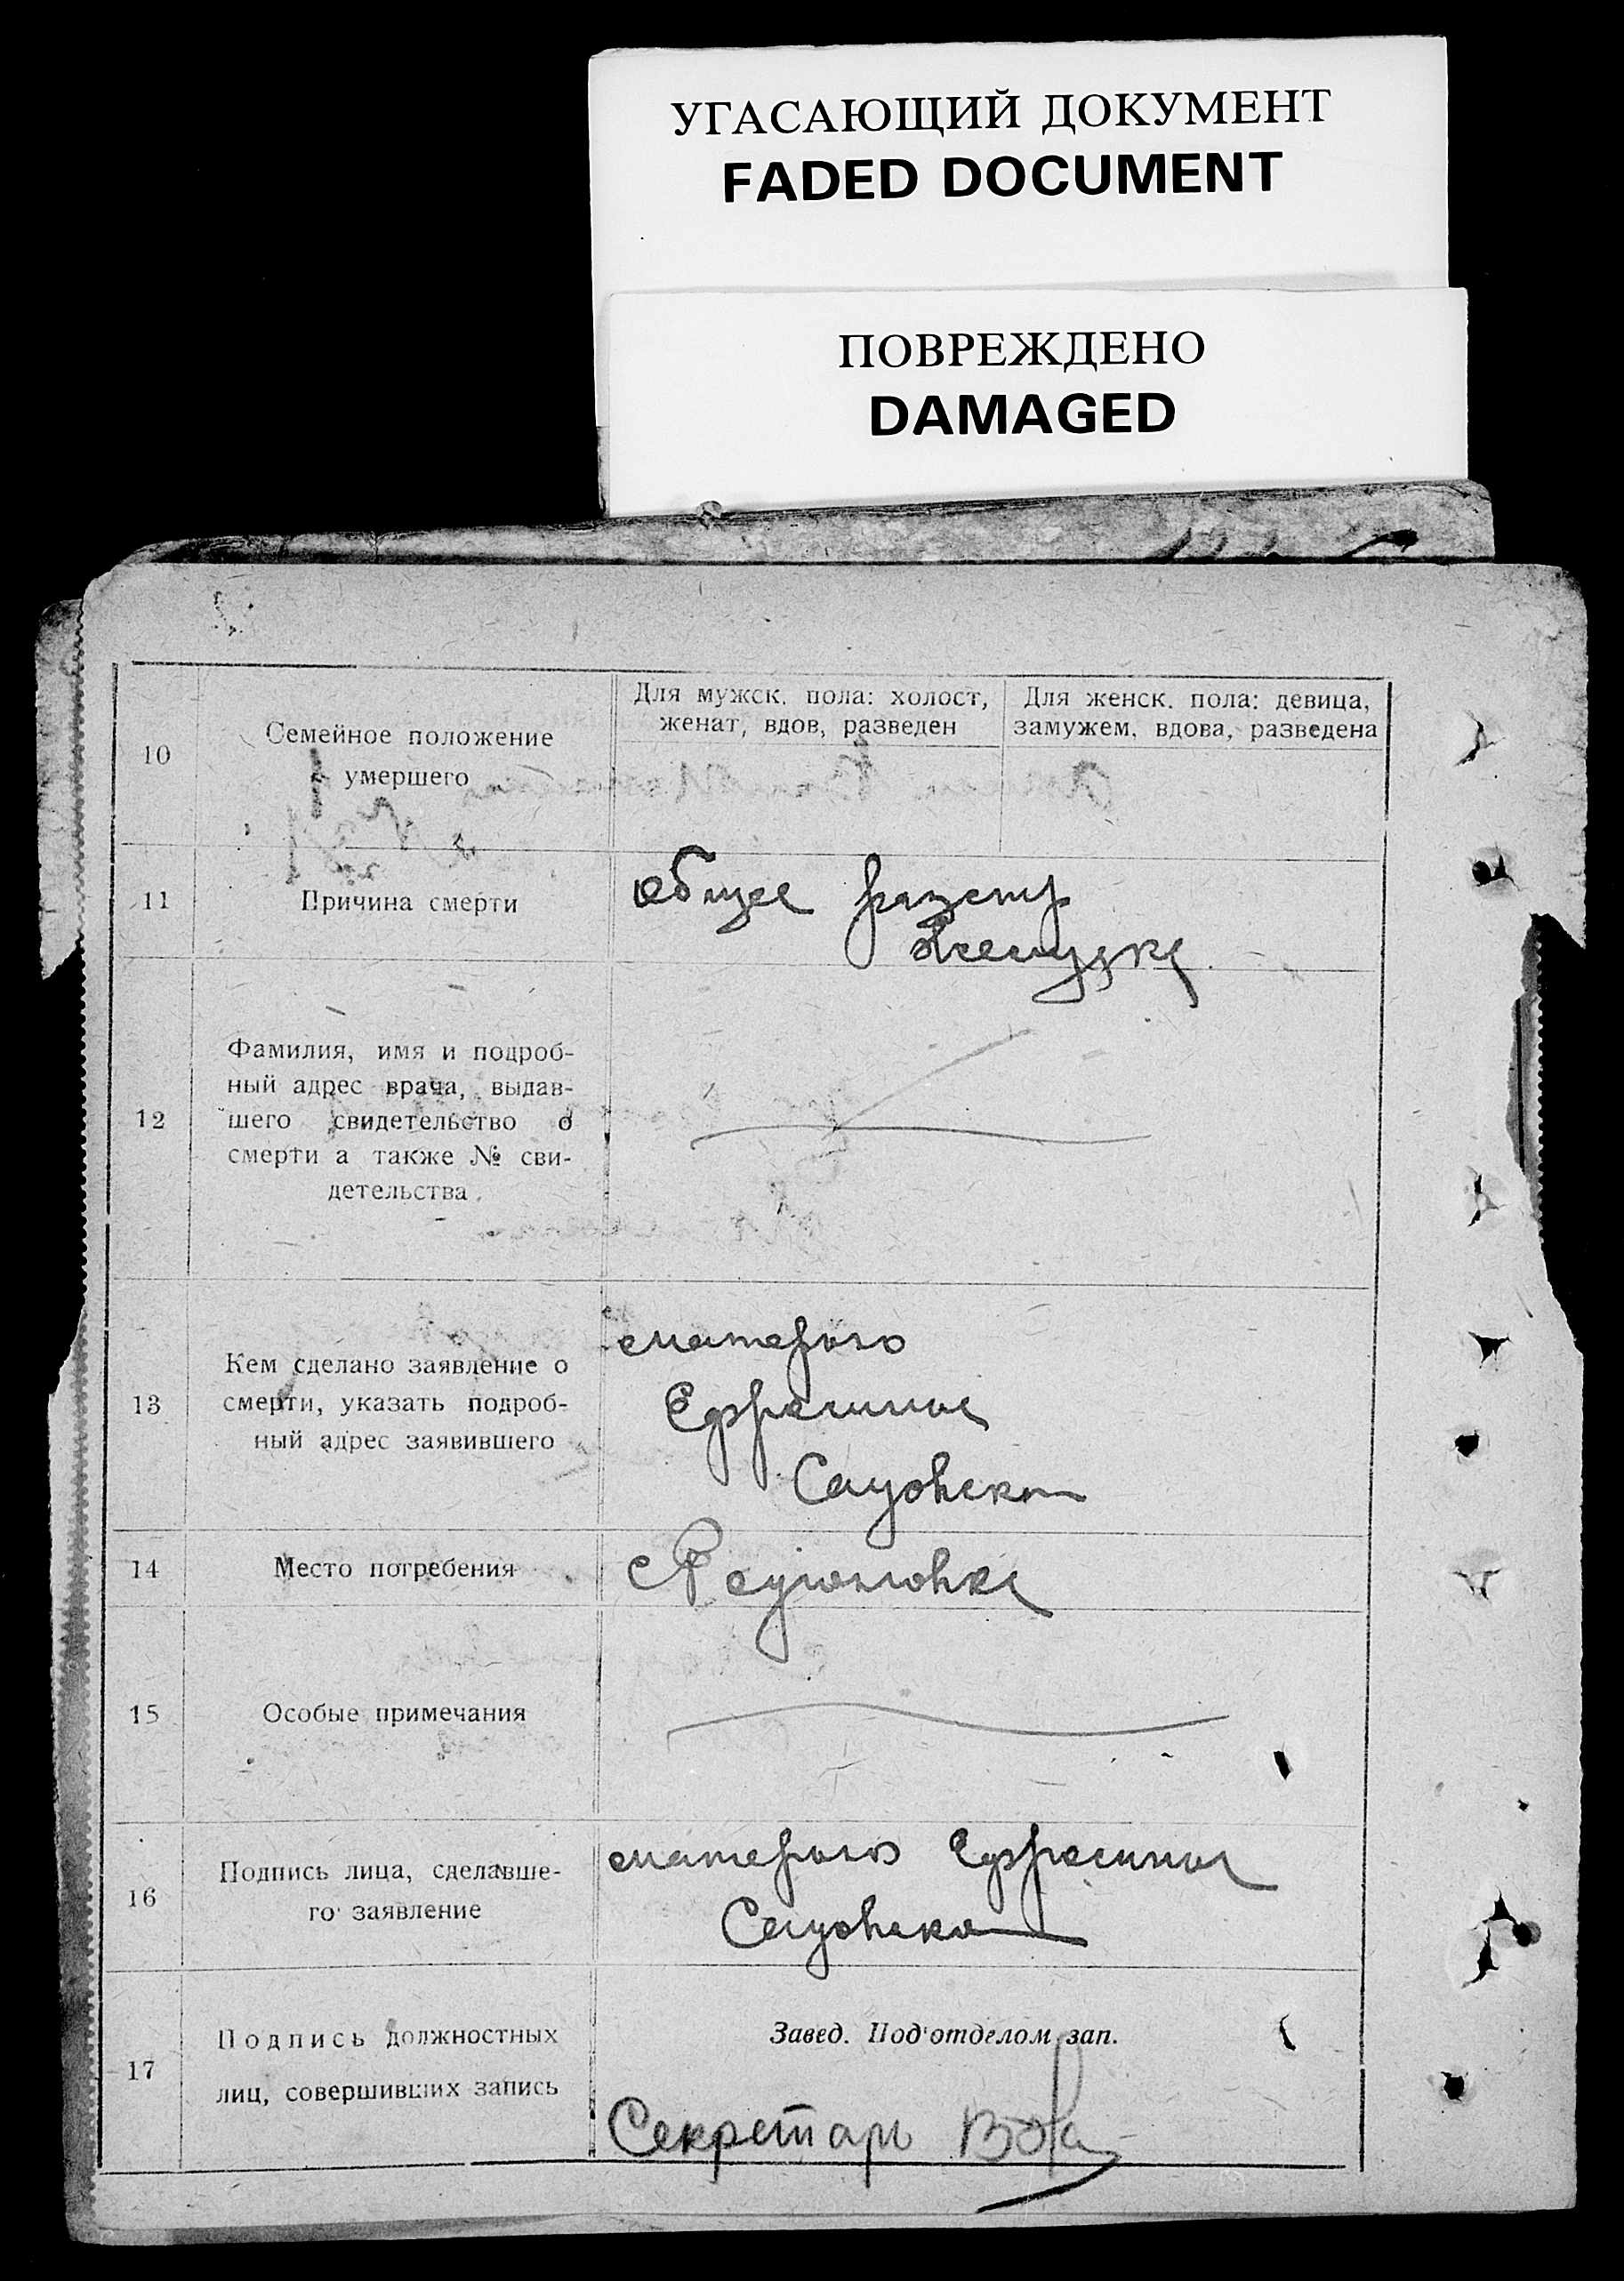 УГАСАЮЩИЙ ДОКУМЕНТ
FADED DOCUMENT
ПОВРЕЖДЕНО
DAMAGED
10
Семейное положение
умершего
Для мужск. пола: холост,
женат, вдов, разведен
Для женск. пола: девица,
замужем, вдова, разведена
11
Причина смерти
общее
желудка
12
Фамилия, имя и подроб-
ный адрес врача, выдав-
шего свидетельство о
смерти а также № сви-
детельства.
13
Кем сделано заявление о
смерти, указать подроб-
ный адрес заявившего
матерью
14
Место погребения
с
15
Особые примечания
16
Подпись лица, сделавше-
го заявление
матерью
17
Подпись должностных
лиц, совершивших запись
Завед. Под'отделом зап.
Секретарь